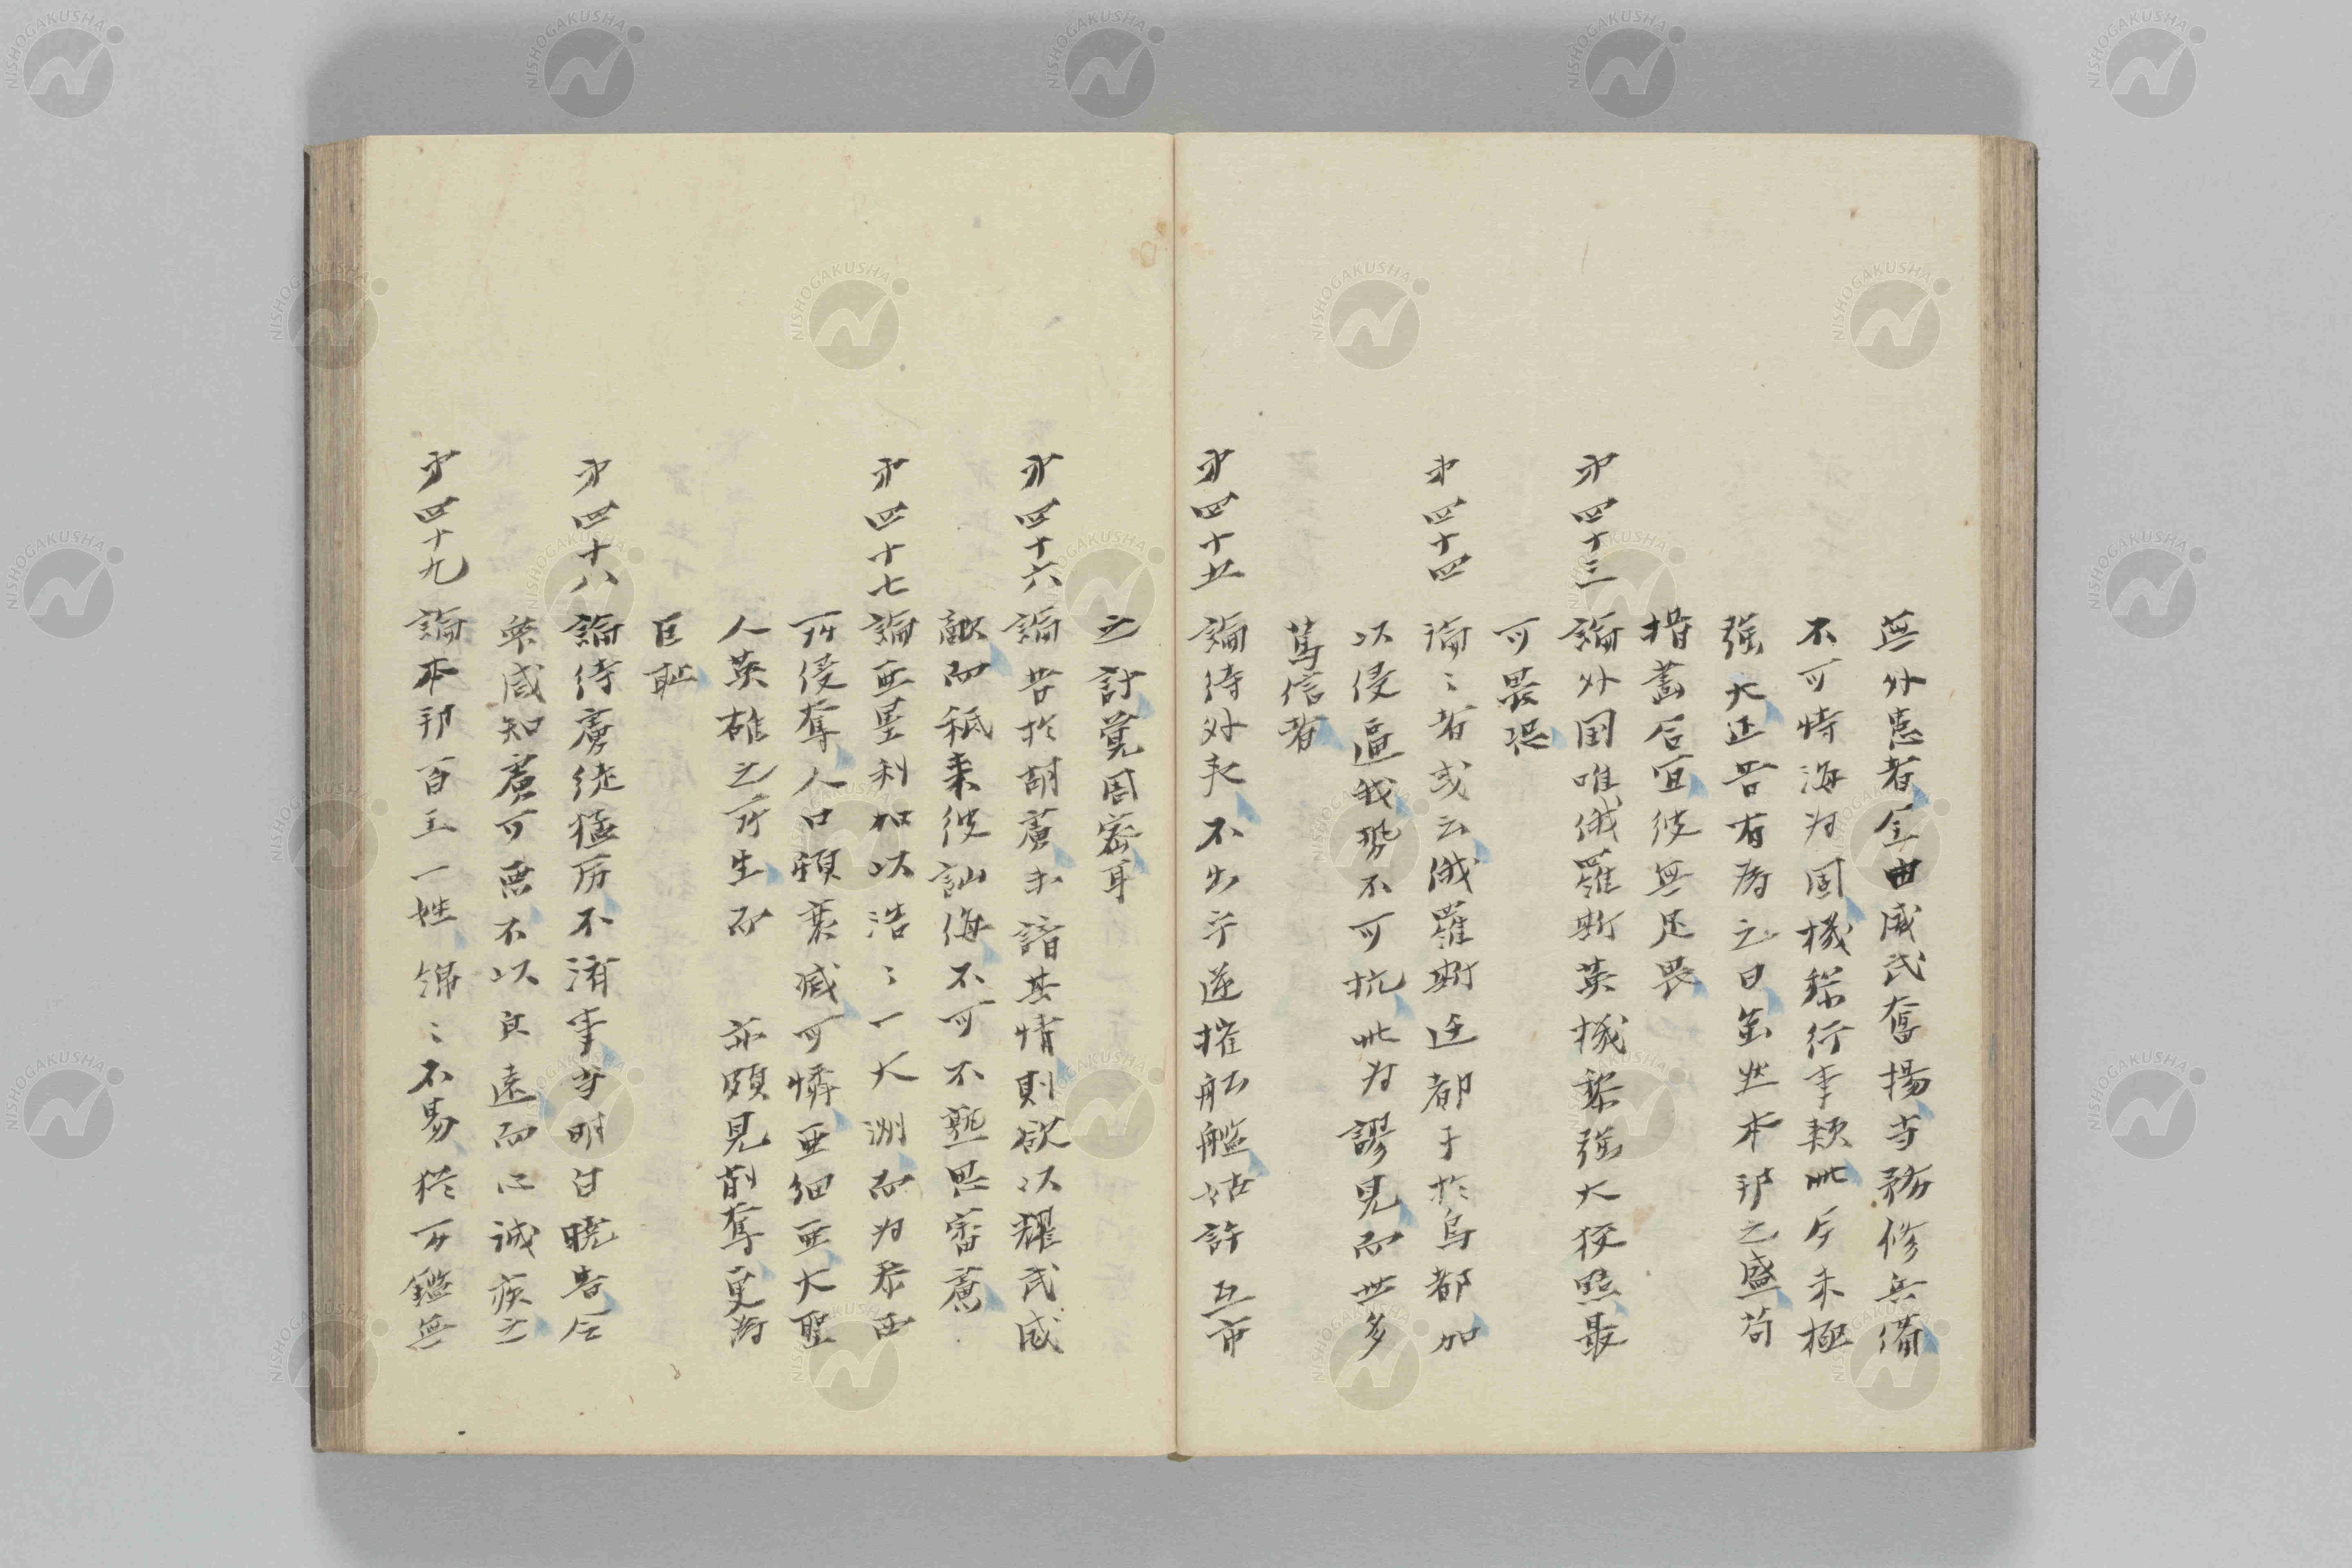 無外患者全由威武奮揚等務修兵備
不可恃海为固機探行事類此今未極
強大正當有為之日虽然本邦之盛苟
措畫合宜彼無足畏
才四十三論外国唯俄羅斯英機黎強大狡黠最
可畏恐
才四十四論〻者或云俄羅斯迁都于於烏都加
以侵逼我勢不可抗此为謬見而世多
篤信者
才四十五論待外夷不出乎遂摧舩艦姑許互市
之計莫固密耳
才四十六論昔於胡虜未諳其情則欲以耀武威
敵而秪来彼訕侮不可不熟思審慮
才四十七論亜墨利加以浩〻一大洲而为泰西
所侵奪人口頓衰减可憐亜細亜大聖
人英雄之所生而亦頗見削奪更为
巨耻
才四十八論待虜徒猛厉不済事當明白曉告令
衆咸知虜可悪不以良遠而心誠疾之
才四十九論本邦百王一姓綿〻不易終万鑑無
NISHOGAKUSHA